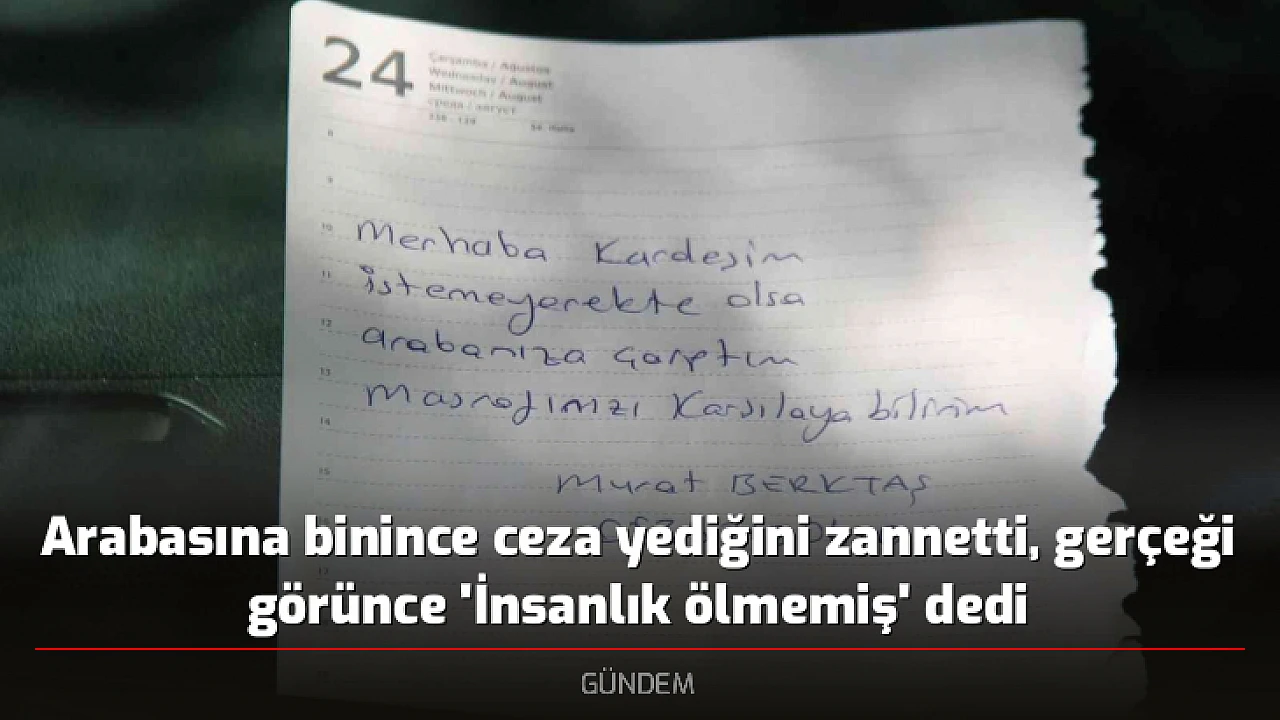 24
Çarşamba / Ağustos
Wednesday / August
Mittwoch / August
среда / август
236 - 129 34. Hafta
8
9
10
Merhaba Kardeşim
11
istemeyerekte olsa
12
arabanıza çarptım
13
Masrafımızı Karşılaya bilirim
14
15
Murat BERKTAŞ
Arabasına binince ceza yediğini zannetti, gerçeği
görünce 'İnsanlık ölmemiş' dedi
17
GÜNDEM